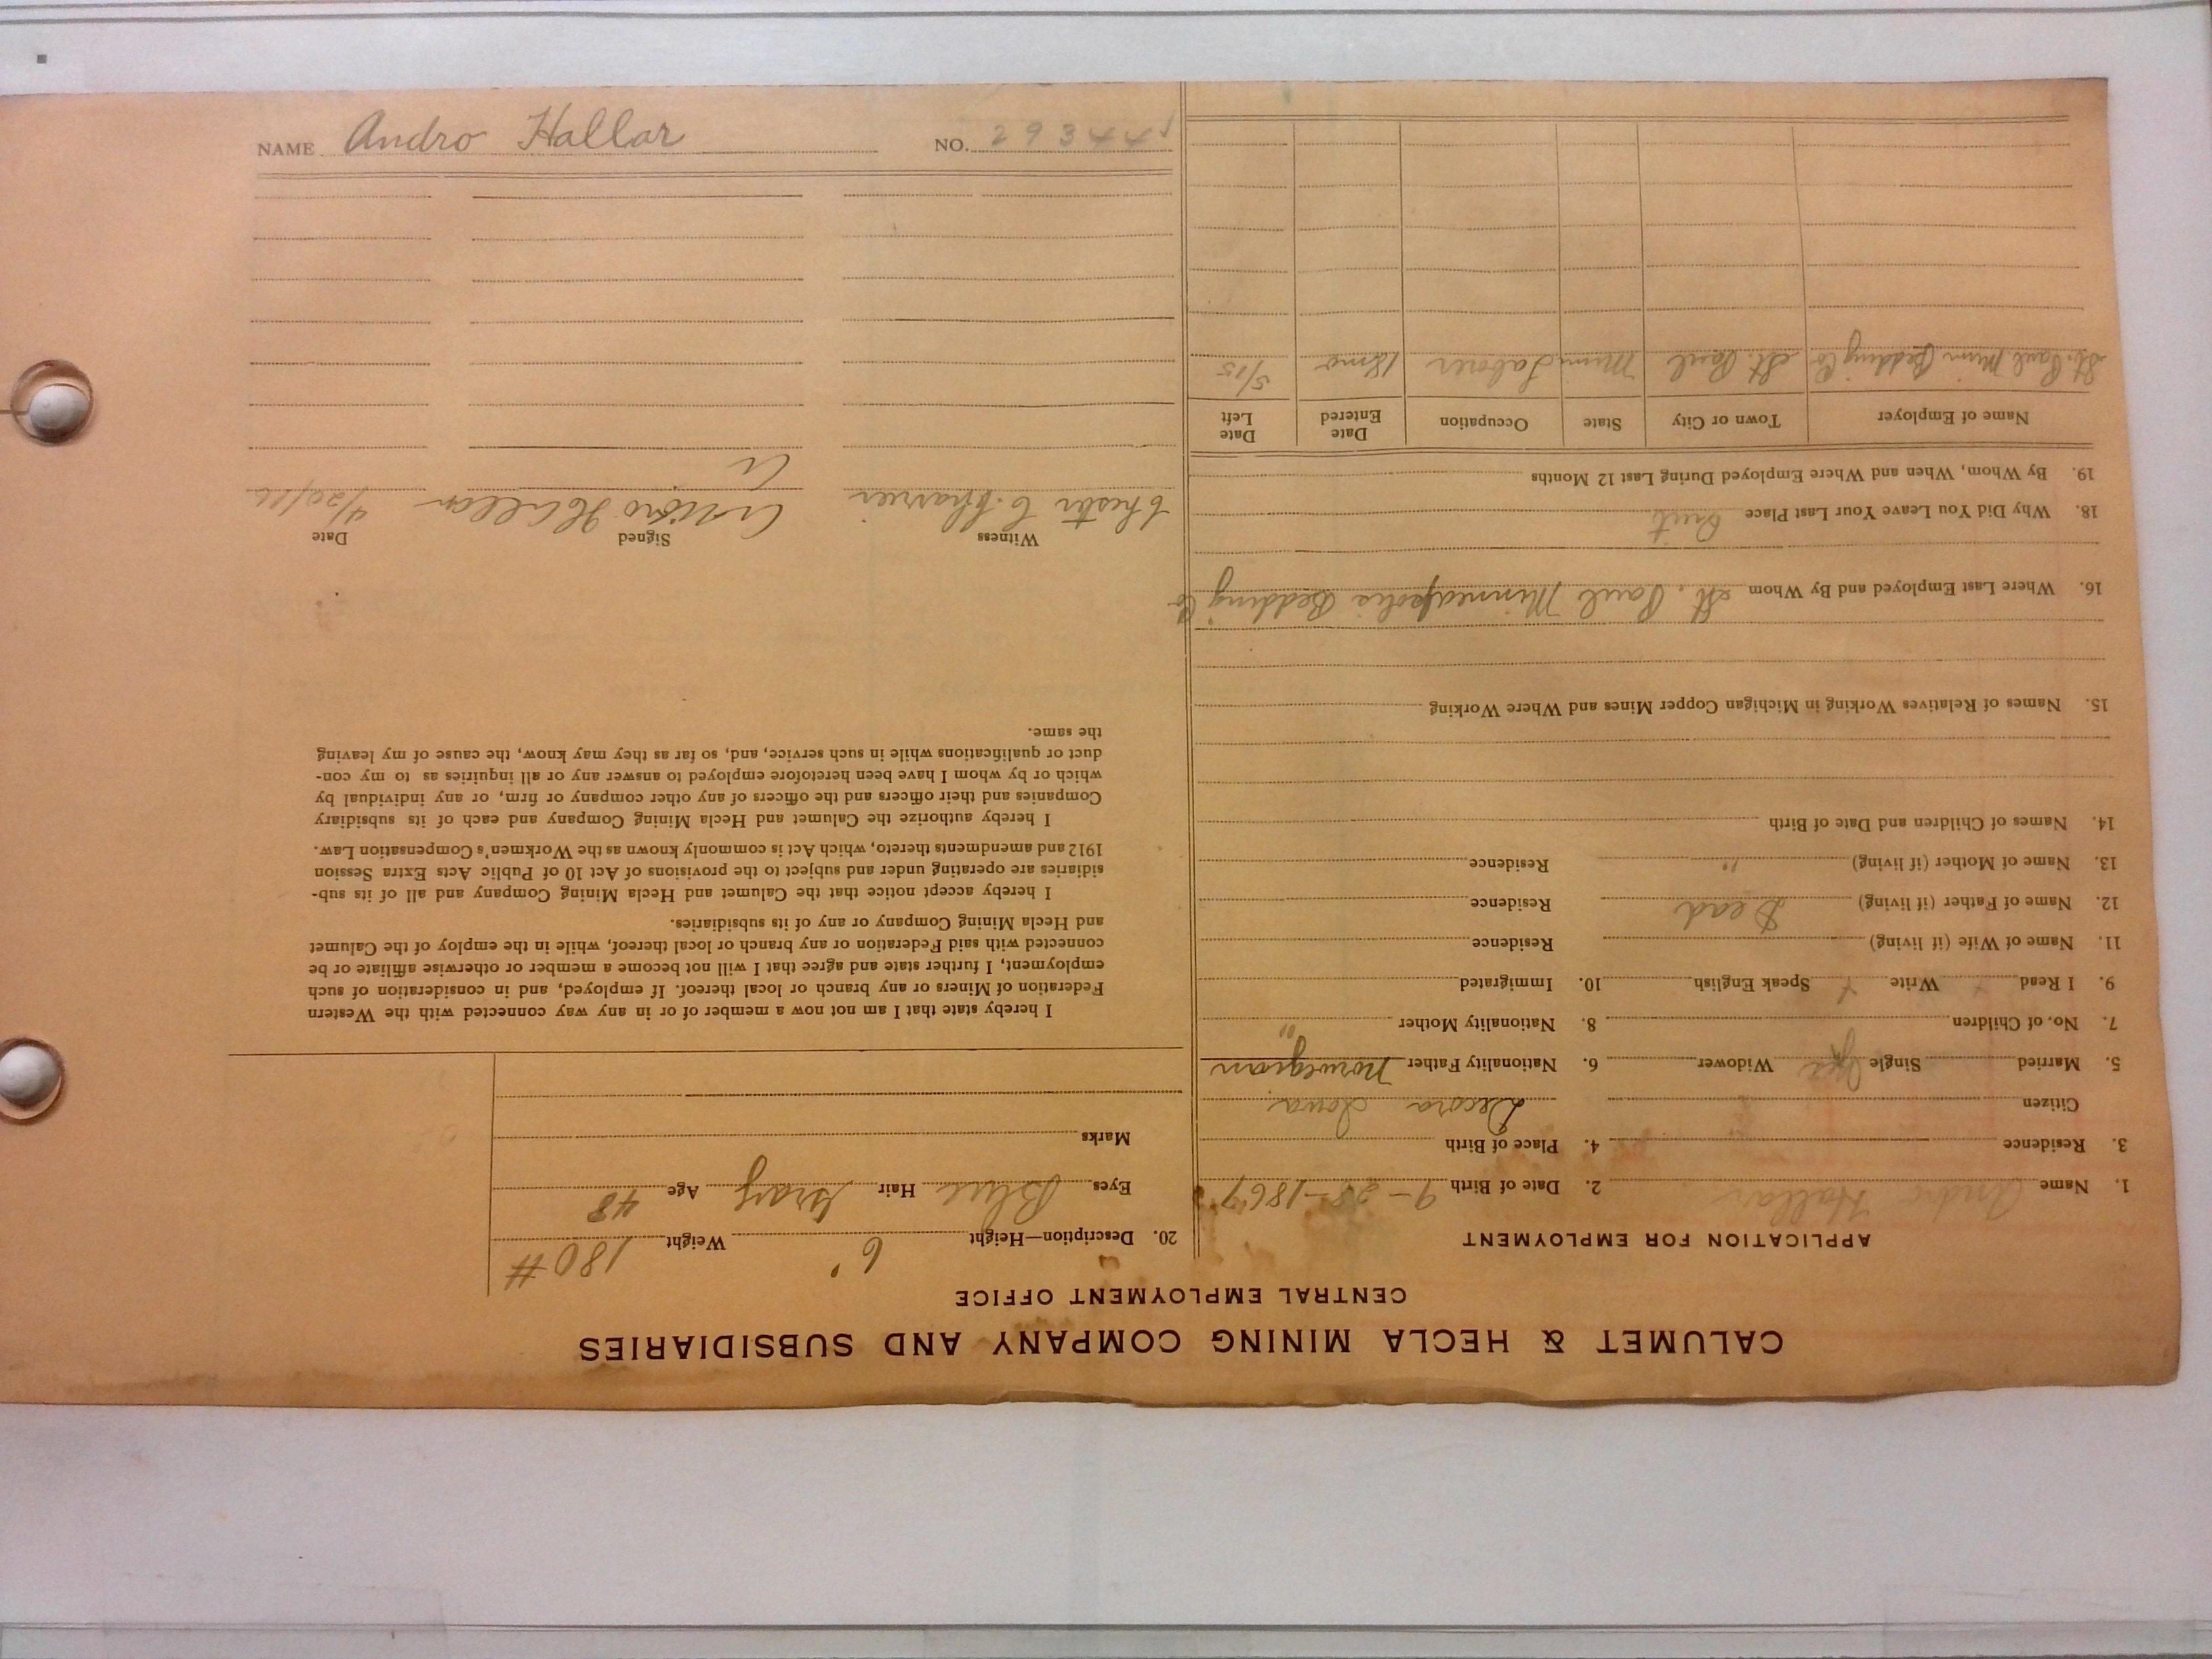 CALUMET & HECLA MINING COMPANY AND SUBSIDIARIES
CENTRAL EMPLOYMENT OFFICE
APPLICATION FOR EMPLOYMENT
1. Name Andro Hallar 2. Date of Birth 9-28-1867
3. Residence 4. Place of Birth
Citizen Decora Iowa
5. Married Single Yes Widower 6. Nationality Father Norwegian
7. No. of Children 8. Nationality Mother "
9. I Read Write Speak English 10. Immigrated
11. Name of Wife (if living) Residence
12. Name of Father (if living) Dead Residence
13. Name of Mother (if living) " Residence
14. Names of Children and Date of Birth
15. Names of Relatives Working in Michigan Copper Mines and Where Working
16. Where Last Employed and By Whom St. Paul Minneapolis Bedding Co
18. Why Did You Leave Your Last Place Quit
19. By Whom, When and Where Employed During Last 12 Months
Name of Employer Town or City State Occupation Date Entered Date Left
St. Paul Minn Bedding Co St. Paul Minn Laborer 18mo 5/15
20. Description—Height 6' Weight 180 #
Eyes Blue Hair Gray Age 48
Marks
I hereby state that I am not now a member of or in any way connected with the Western
Federation of Miners or any branch or local thereof. If employed, and in consideration of such
employment, I further state and agree that I will not become a member or otherwise affiliate or be
connected with said Federation or any branch or local thereof, while in the employ of the Calumet
and Hecla Mining Company or any of its subsidiaries.
I hereby accept notice that the Calumet and Hecla Mining Company and all of its sub-
sidiaries are operating under and subject to the provisions of Act 10 of Public Acts Extra Session
1912 and amendments thereto, which Act is commonly known as the Workmen's Compensation Law.
I hereby authorize the Calumet and Hecla Mining Company and each of its subsidiary
Companies and their officers and the officers of any other company or firm, or any individual by
which or by whom I have been heretofore employed to answer any or all inquiries as to my con-
duct or qualifications while in such service, and, so far as they may know, the cause of my leaving
the same.
Witness Signed Date
Chester C. Andro Hallar 4/20/16
NAME Andro Hallar NO. 29344